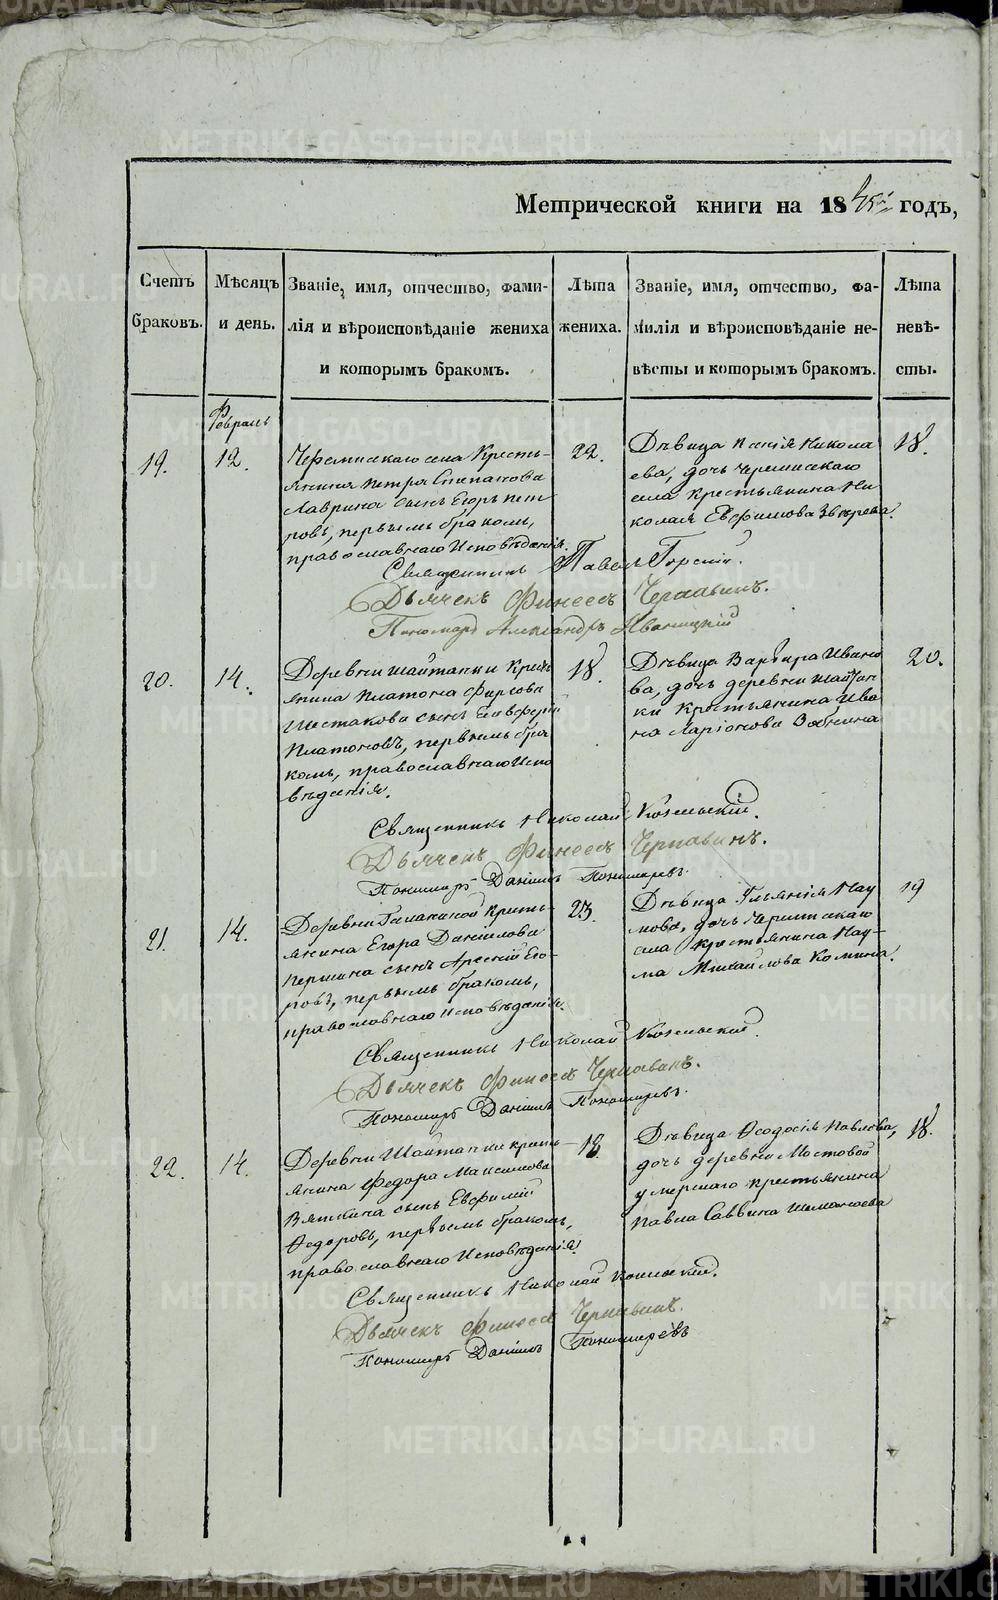 Метрической книги на 1845й годъ,
Счетъ браковъ.
Мѣсяцъ и день.
Званіе, имя, отчество, фами-
лія и вѣроисповѣданіе жениха
и которымъ бракомъ.
Лѣта жениха.
Званіе, имя, отчество, фа-
милія и вѣроисповѣданіе не-
вѣсты и которымъ бракомъ.
Лѣта невѣ-
сты.
Февраль
19.
12.
Черемисскаго села Кресть-
янина Петра Степанова
Лаврина сынъ Егоръ Пет
ровъ, первымъ бракомъ,
православнаго Исповѣданія.
22.
Дѣвица Ксенія Никола
ева, дочь Черемисскаго
села крестьянина Ни
колая Евфимова Звѣрева.
18.
Священникъ Павелъ Горскій.
Дьячекъ Финеесъ Чернавинъ.
Пономарь Александръ Иваницкій
20.
14.
Деревни Шайтанки Крест
янина Платона Фирсова
Шестакова сынъ Елевферій
Платоновъ, первымъ бра
комъ, православнаго Испо
вѣданія.
18.
Дѣвица Варвара Ивано
ва, дочь деревни Шайтан
ки Крестьянина Ива
на Ларіонова Зобнина
20.
Священникъ Николай
Дьячекъ Финеесъ Чернавинъ.
Пономарь Даніилъ Пономаревъ.
21.
14.
Деревни Кресть-
янина Егора Даніилова
Першина сынъ Арсеній Его-
ровъ, первымъ бракомъ,
православнаго исповѣданія.
23.
Дѣвица Ульянія Нау
мова, дочь
села крестьянина Нау-
ма Михайлова Комина.
19
Священникъ Николай
Дьячекъ Финеесъ Чернавинъ.
Пономарь Даніилъ Пономаревъ.
22.
14.
Деревни Шайтанки крест
янина Федора Максимова
Вяткина сынъ Евфимій
Ѳедоровъ, первымъ бракомъ,
православнаго Исповѣданія.
18.
Дѣвица Ѳеодосія Павлова,
дочь деревни Мостовой
умершаго крестьянина
Павла Саввина Шаманаева
18.
Священникъ Николай
Дьячекъ Финеесъ Чернавинъ.
Пономарь Даніилъ Пономаревъ
METRIKI.GASO-URAL.RU